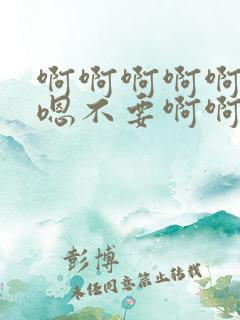 啊啊啊啊啊
嗯不要啊啊
彭博
未经同意禁止转载